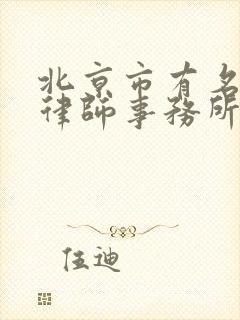 北京市有名
律師事務所
伍迪